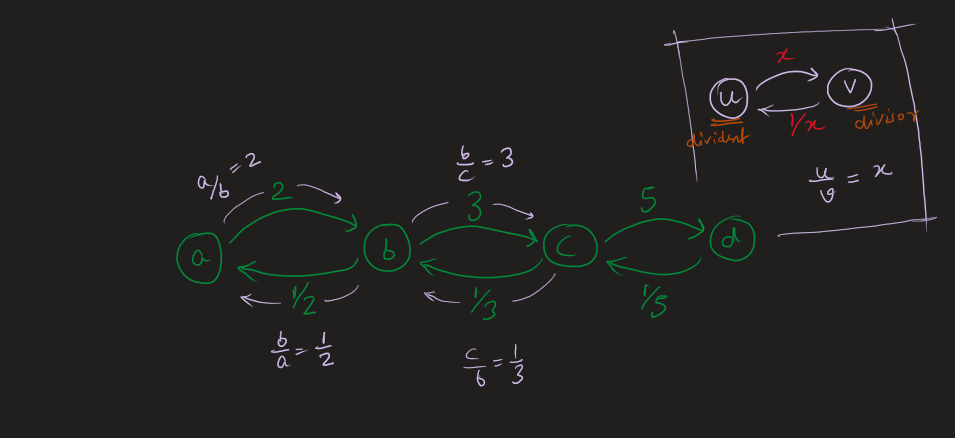 x
u
v
1/x
divident
divisor
u/v = x
a/b = 2
b/c = 3
2
3
5
a
b
c
d
1/2
1/3
1/5
b/a = 1/2
c/b = 1/3